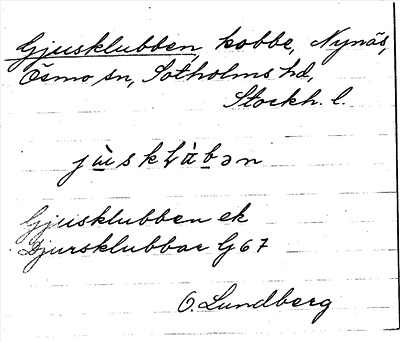 Gjusklubben, kobbe, Nynäs,
Ösmo sn, Sotholms hd,
Stockh. l.
jùsklàbən
Gjusklubben ek
Djursklubbar G 67
O. Lundberg